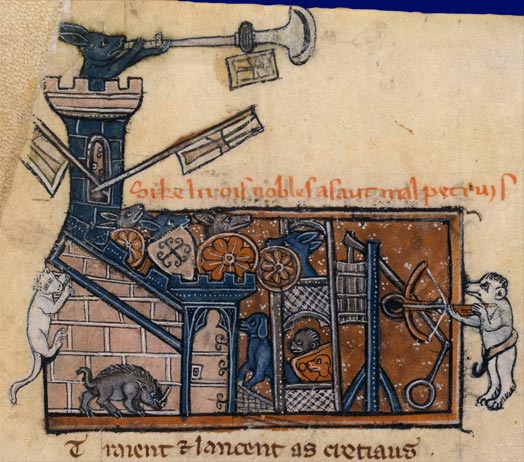 Si ke li rois nobles asaut mal petruis
T raient & lancent as cretiaus